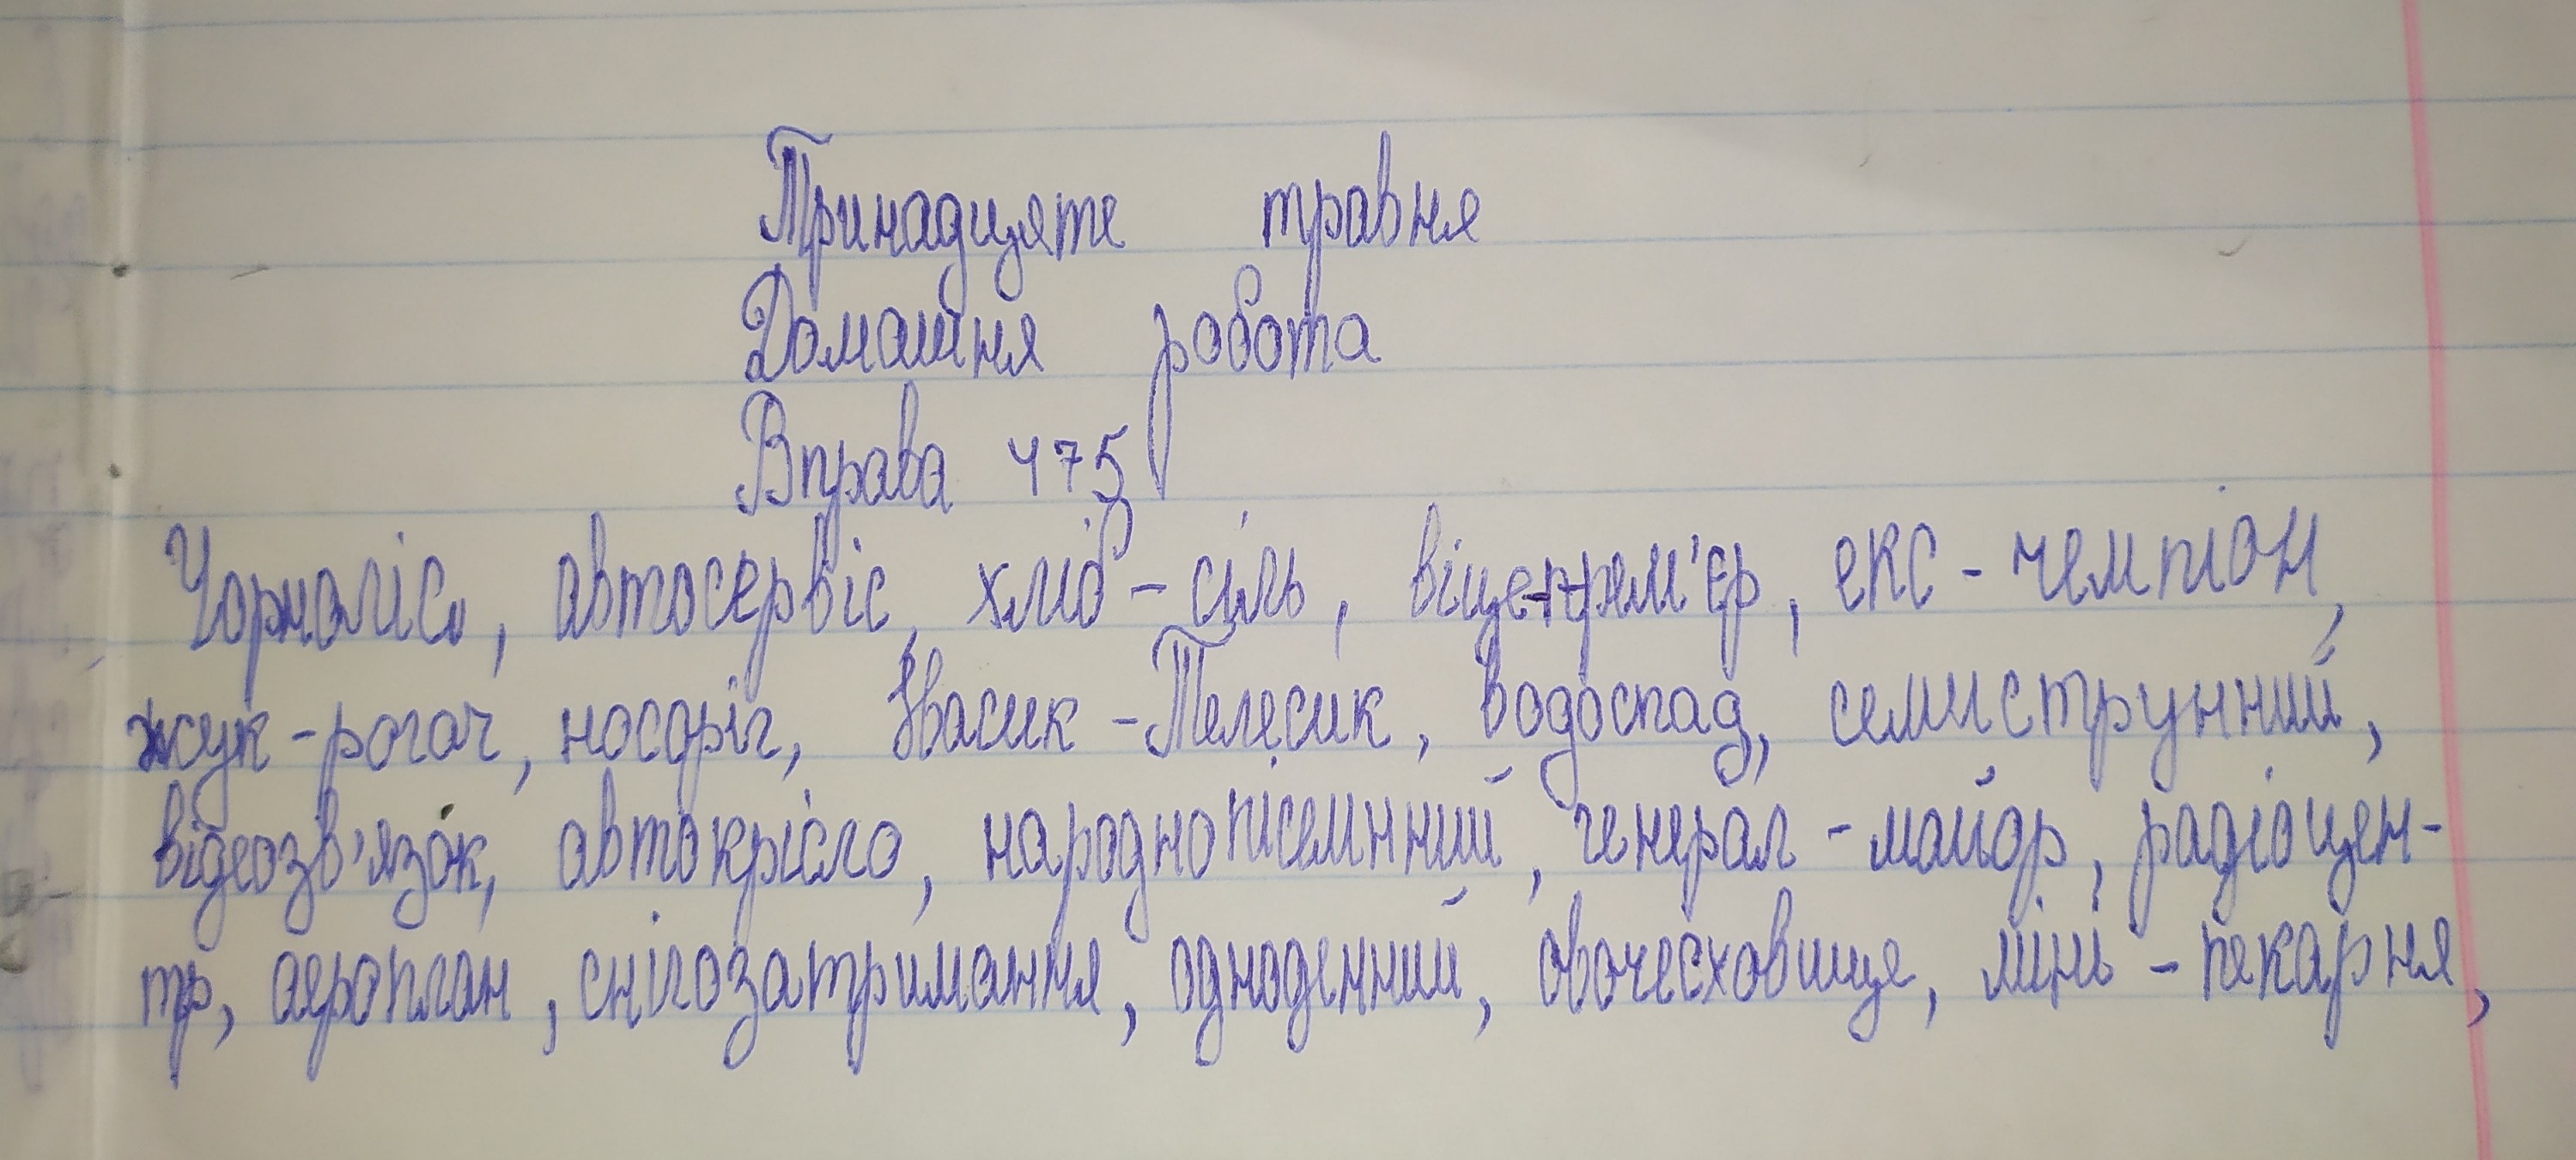 Тринадцяте травня
Домашня робота
Вправа 475
Чорноліс, автосервіс, хліб-сіль, віце-прем'єр, екс-чемпіон,
жук-рогач, носоріг, Івасик-Телесик, водоспад, семиструнний,
відеозв'язок, автокрісло, народнопісемнний, генерал-майор, радіоцен-
тр, аероплан, снігозатримання, одноденний, овочесховище, міні-пекарня,